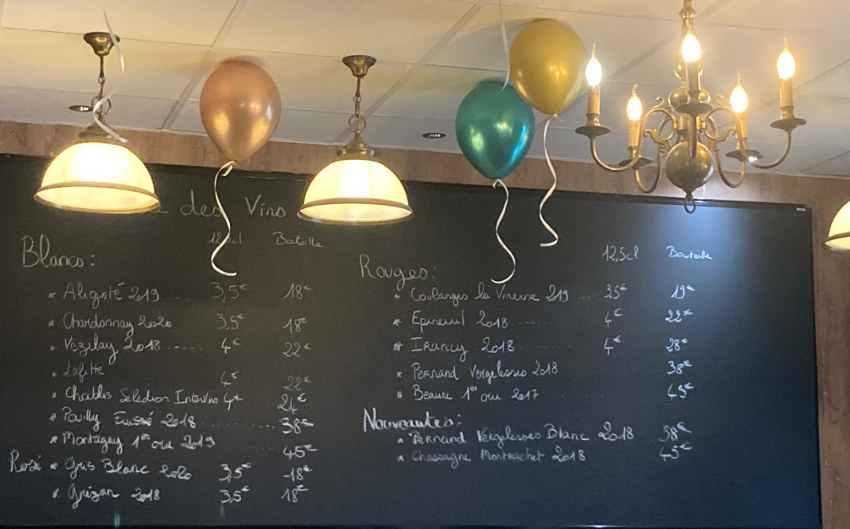 des Vins
12,5cl Bouteille
Blancs:
Aligoté 2019 3,5€ 18€
Chardonnay 2020 3,5€ 18€
Vézelay 2018 4€ 22€
4€ 22€
Chablis Sélection 4€ 24€
Pouilly Fuissé 2018 38€
Montagny 1er cru 2019 45€
Rosé Gris Blanc 2020 3,5€ 18€
2018 3,5€ 18€
12,5cl Bouteille
Rouges:
Coulanges la Vineuse 2019 3,5€ 19€
Epineuil 2018 4€ 22€
Irancy 2018 4€ 28€
Pernand Vergelesses 2018 38€
Beaune 1er cru 2017 45€
Nouveautés:
Pernand Vergelesses Blanc 2018 38€
Chassagne Montrachet 2018 45€